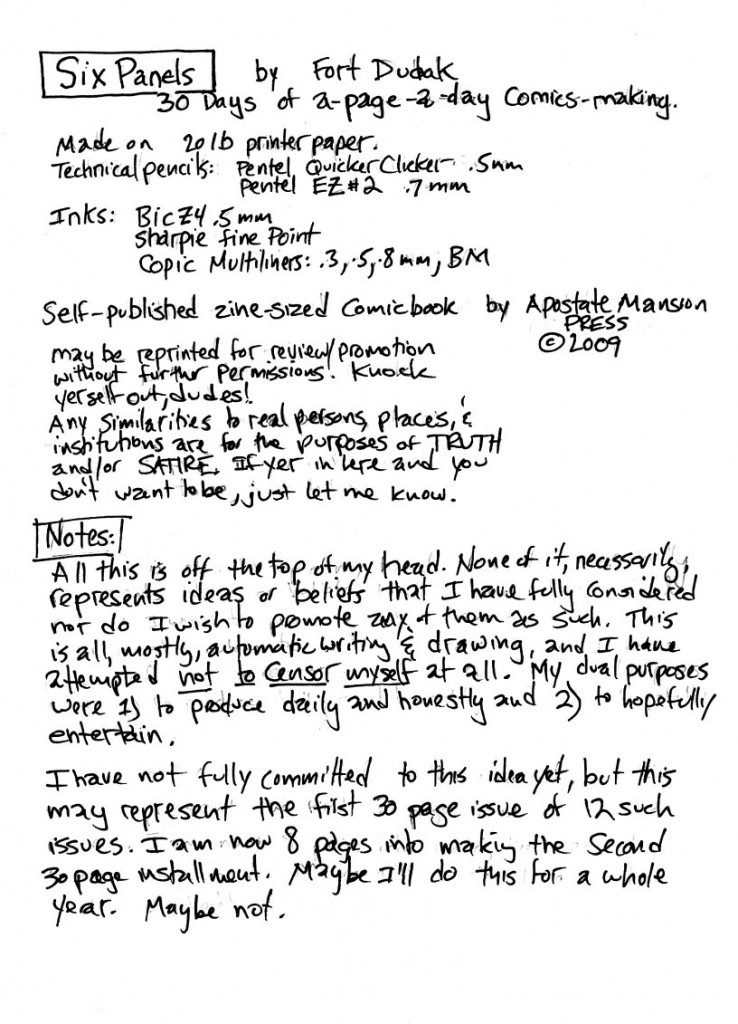 Six Panels by Fort Dudak
30 Days of a-page-a-day Comics-making.
Made on 20lb printer paper.
Technical pencils: Pentel QuickerClicker .5mm
Pentel EZ#2 .7mm
Inks: Bic Z4 .5mm
Sharpie fine Point
Copic Multiliners: .3, .5, .8mm, BM
Self-published zine-sized Comicbook by Apostate Mansion
PRESS
© 2009
may be reprinted for review/promotion
without further permissions! Knock
yerself out, dudes!
Any similarities to real persons, places, &
institutions are for the purposes of TRUTH
and/or SATIRE. If yer in here and you
don't want to be, just let me know.
Notes:
All this is off the top of my head. None of it, necessarily,
represents ideas or beliefs that I have fully considered
nor do I wish to promote any of them as such. This
is all, mostly, automatic writing & drawing, and I have
attempted not to censor myself at all. My dual purposes
were 1) to produce daily and honestly and 2) to hopefully
entertain.
I have not fully committed to this idea yet, but this
may represent the first 30 page issue of 12 such
issues. I am now 8 pages into making the Second
30 page installment. Maybe I'll do this for a whole
year. Maybe not.